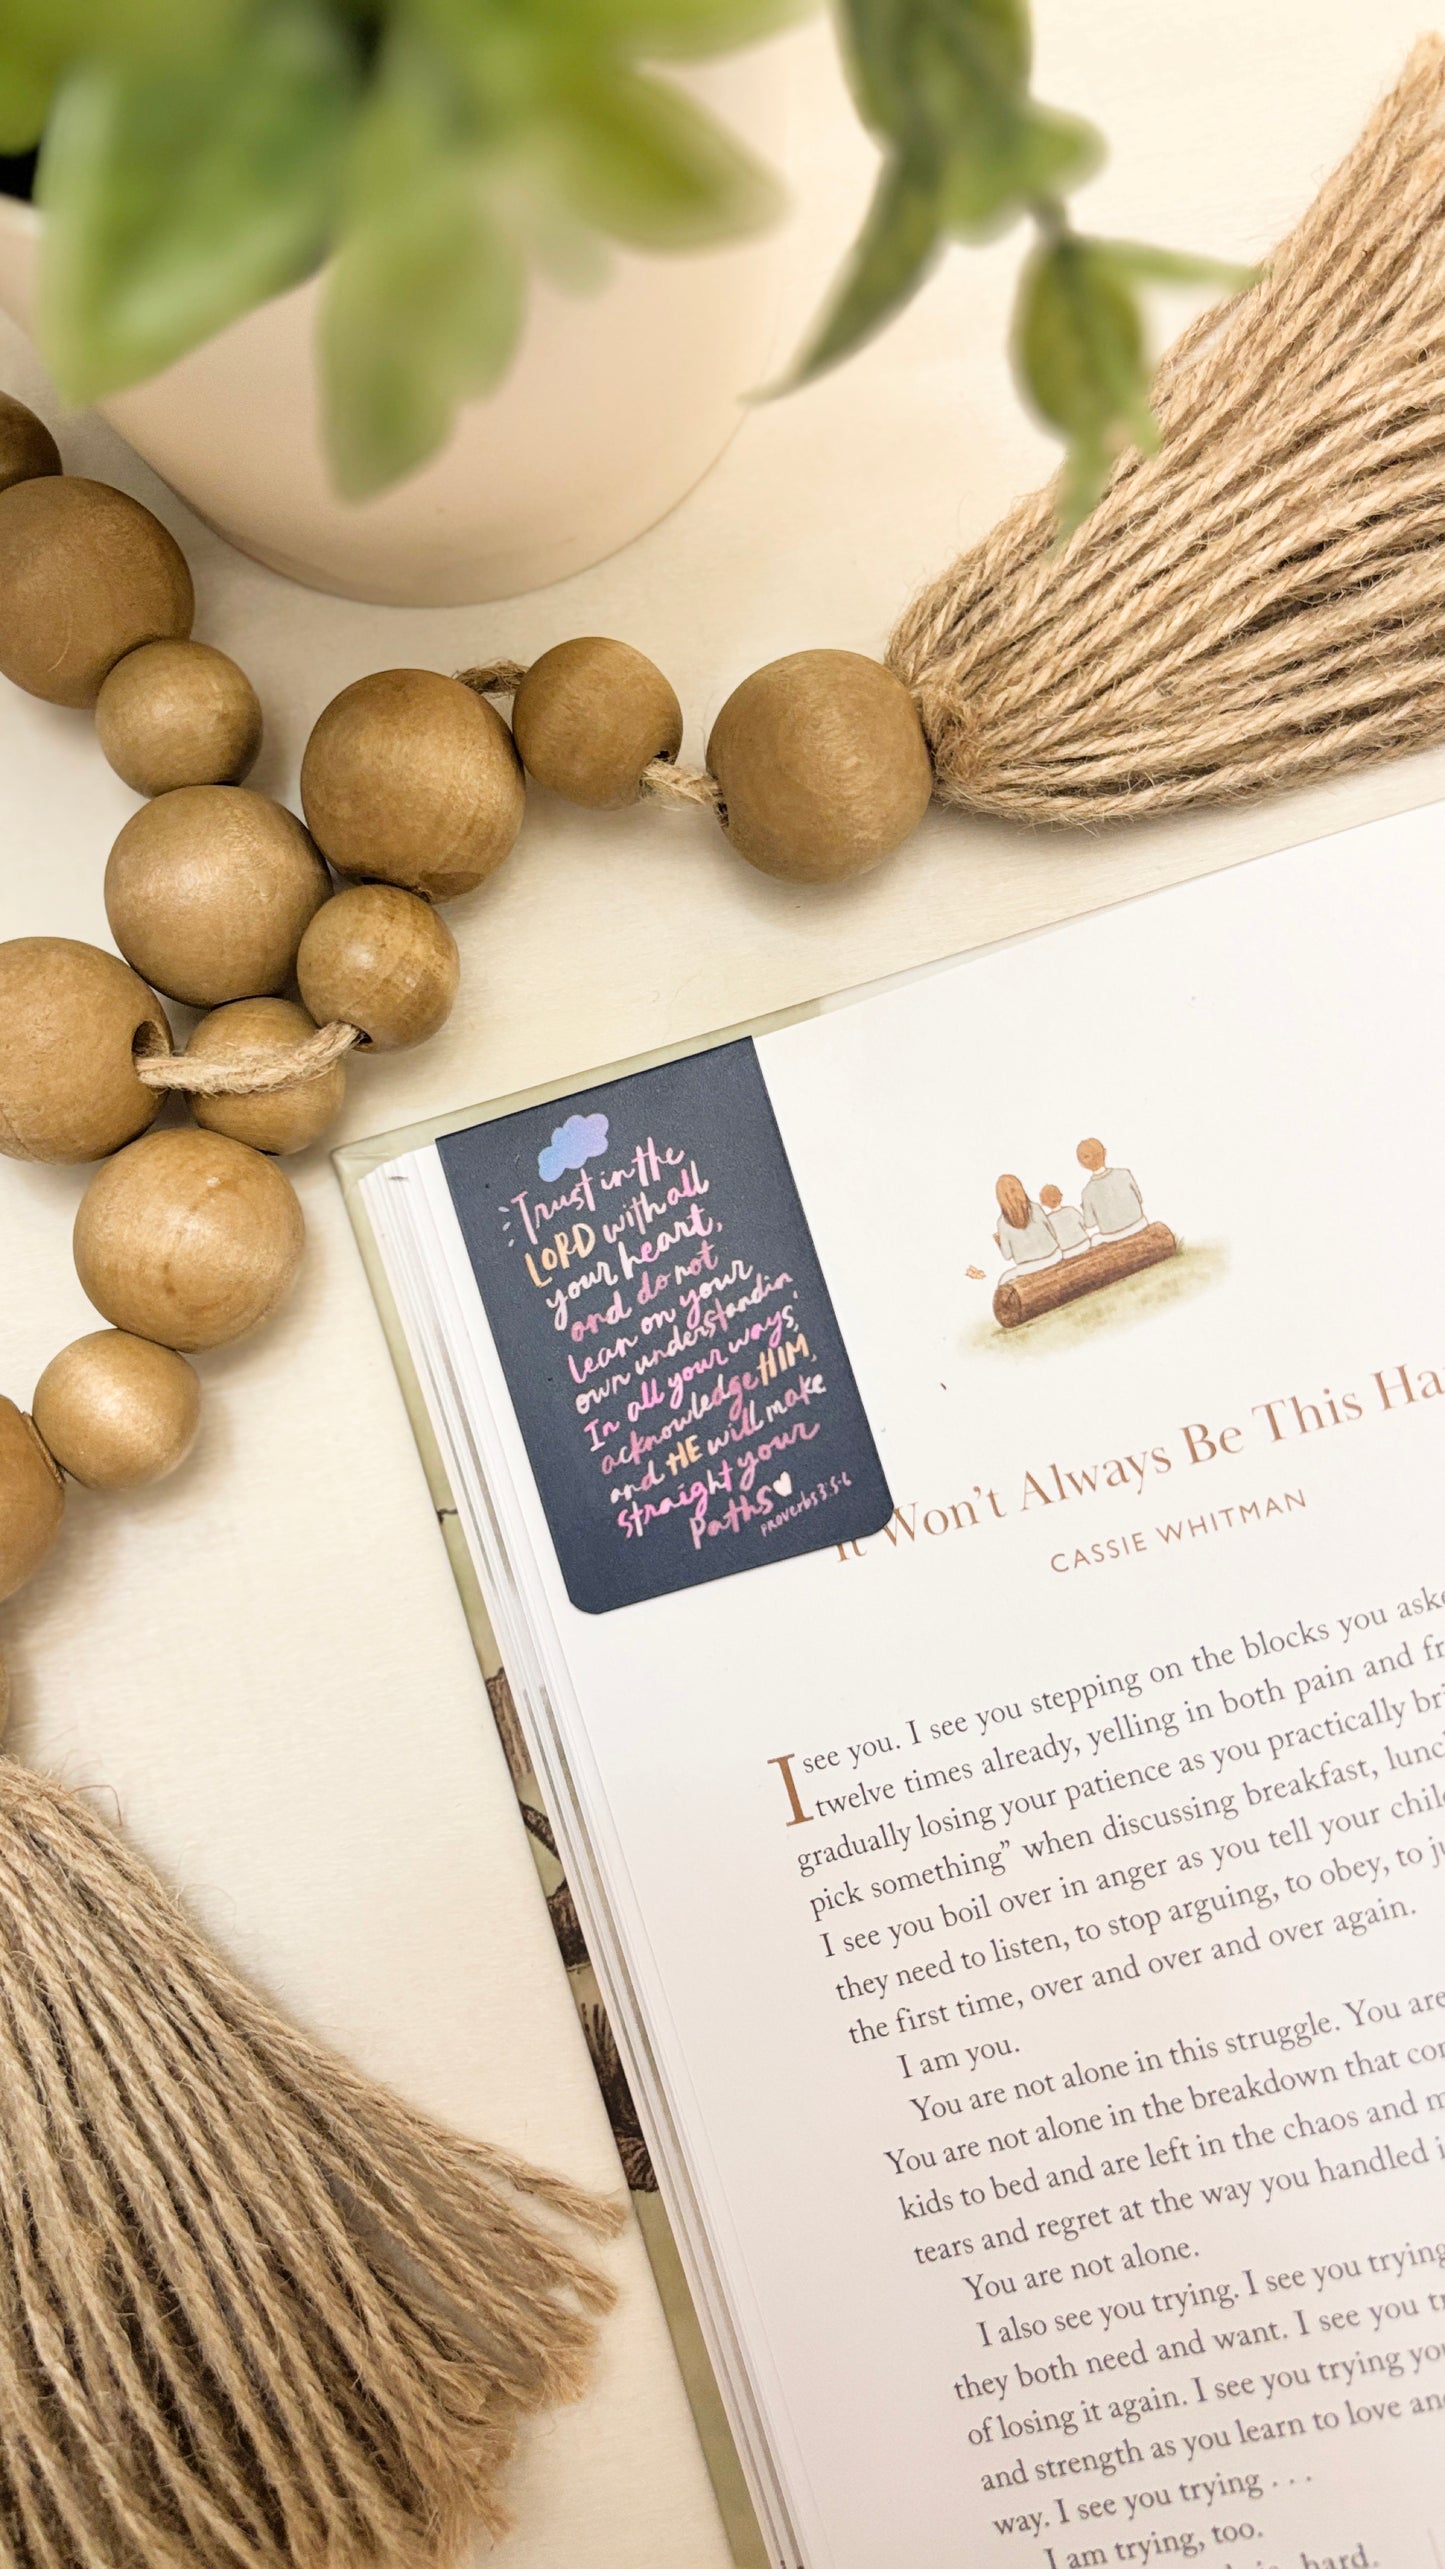 Trust in the
LORD with all
your heart,
and do not
lean on your
own understandin
In all your ways,
acknowledge HIM,
and HE will make
straight your
Paths
Proverbs 3:5-6
It Won't Always Be This Ha
CASSIE WHITMAN
I see you. I see you stepping on the blocks you aske
twelve times already, yelling in both pain and fr
gradually losing your patience as you practically bri
pick something” when discussing breakfast, lunc
I see you boil over in anger as you tell your chil
they need to listen, to stop arguing, to obey, to ju
the first time, over and over and over again.
I am you.
You are not alone in this struggle. You are
You are not alone in the breakdown that co
kids to bed and are left in the chaos and m
tears and regret at the way you handled i
You are not alone.
I also see you trying. I see you trying
they both need and want. I see you tr
of losing it again. I see you trying yo
and strength as you learn to love an
way. I see you trying . . .
I am trying, too.
hard.